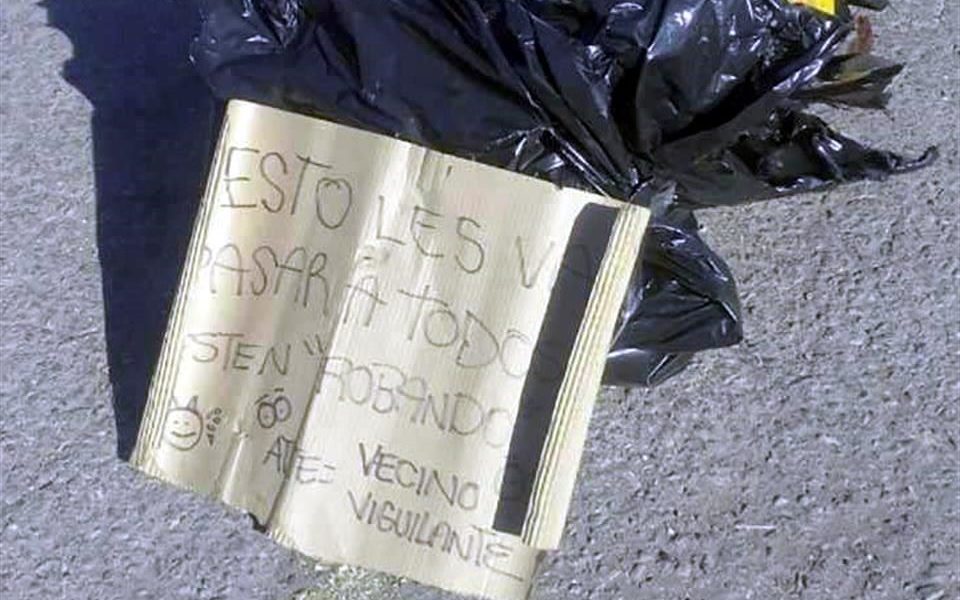 ESTO LES VA
PASAR A TODOS
STEN "ROBANDO
ATE= VECINO
VIGUILANTE